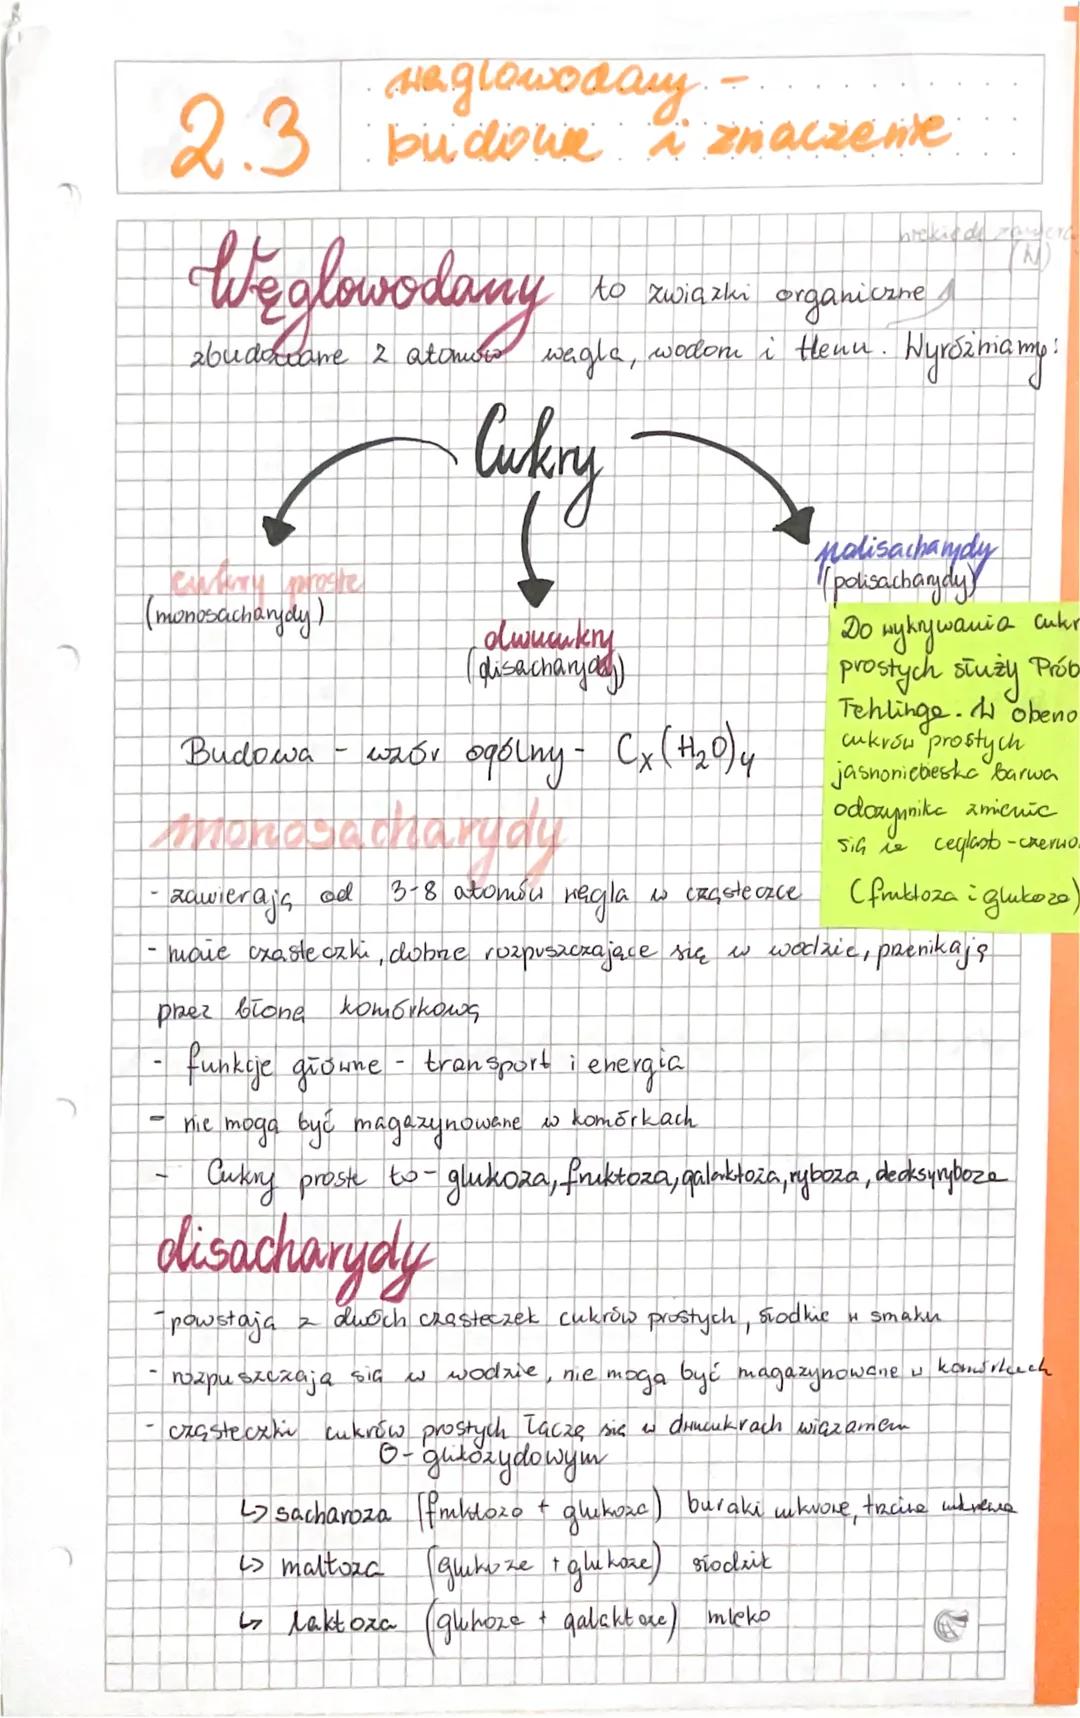 2.3
węglowodany -
budowa i znaczenie
niekiedy
(N)
Węglowodany to związki organiczne
zbudowane z atomów węgla, wodoru i tlenu. Wyróżniamy:
Cukry
cukry proste
(monosacharydy)
dwucukry
(disacharydy)
polisacharydy
(polisacharydy)
Do wykrywania cukr
prostych służy Prób
Fehlinga. W obecno
cukrów prostych
jasnoniebieska barwa
odczynnika zmienia
się na ceglasto-czerwo
(fruktoza i glukoza)
Budowa - wzór ogólny - Cx(H2O)y
monosacharydy
- zawierają od 3-8 atomów węgla w cząsteczce
- małe cząsteczki, dobrze rozpuszczające się w wodzie, przenikają
przez błonę komórkową
- funkcje główne - transport i energia
- nie mogą być magazynowane w komórkach
- Cukry proste to - glukoza, fruktoza, galaktoza, ryboza, deoksyryboza
disacharydy
- powstają z dwóch cząsteczek cukrów prostych, słodkie w smaku
- rozpuszczają się w wodzie, nie mogą być magazynowane w komórkach
- cząsteczki cukrów prostych łączą się w dwucukrach wiązaniem
O-glikozydowym
↳ sacharoza (fruktoza + glukoza) buraki cukrowe, trzcina cukrowa
↳ maltoza (glukoza + glukoza) słodzik
↳ laktoza (glukoza + galaktoza) mleko